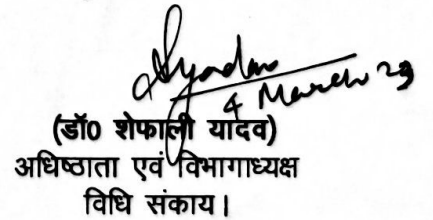 Syadav
4 March 23
(डॉ0 शेफाली यादव)
अधिष्ठाता एवं विभागाध्यक्ष
विधि संकाय।